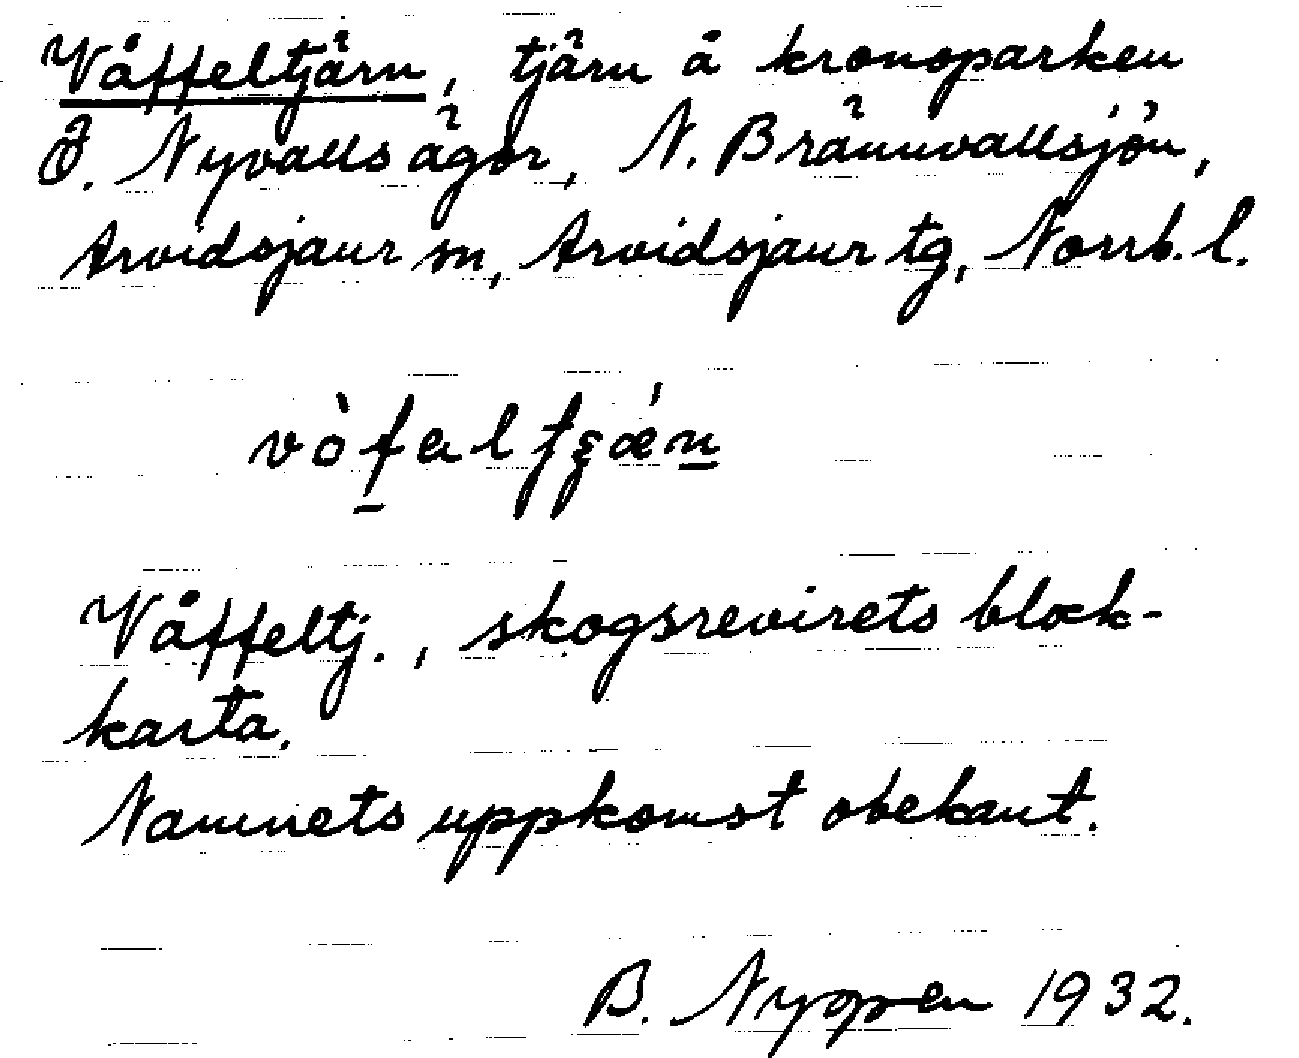 Våffeltjärn, tjärn å kronoparken
Ö. Nyvalls ägor, N. Brännvallsjön,
Arvidsjaur sn, Arvidsjaur tg, Norrb. l.
Våffeltj., skogsrevirets block-
karta.
Namnets uppkomst obekant.
B. Nyopen 1932.